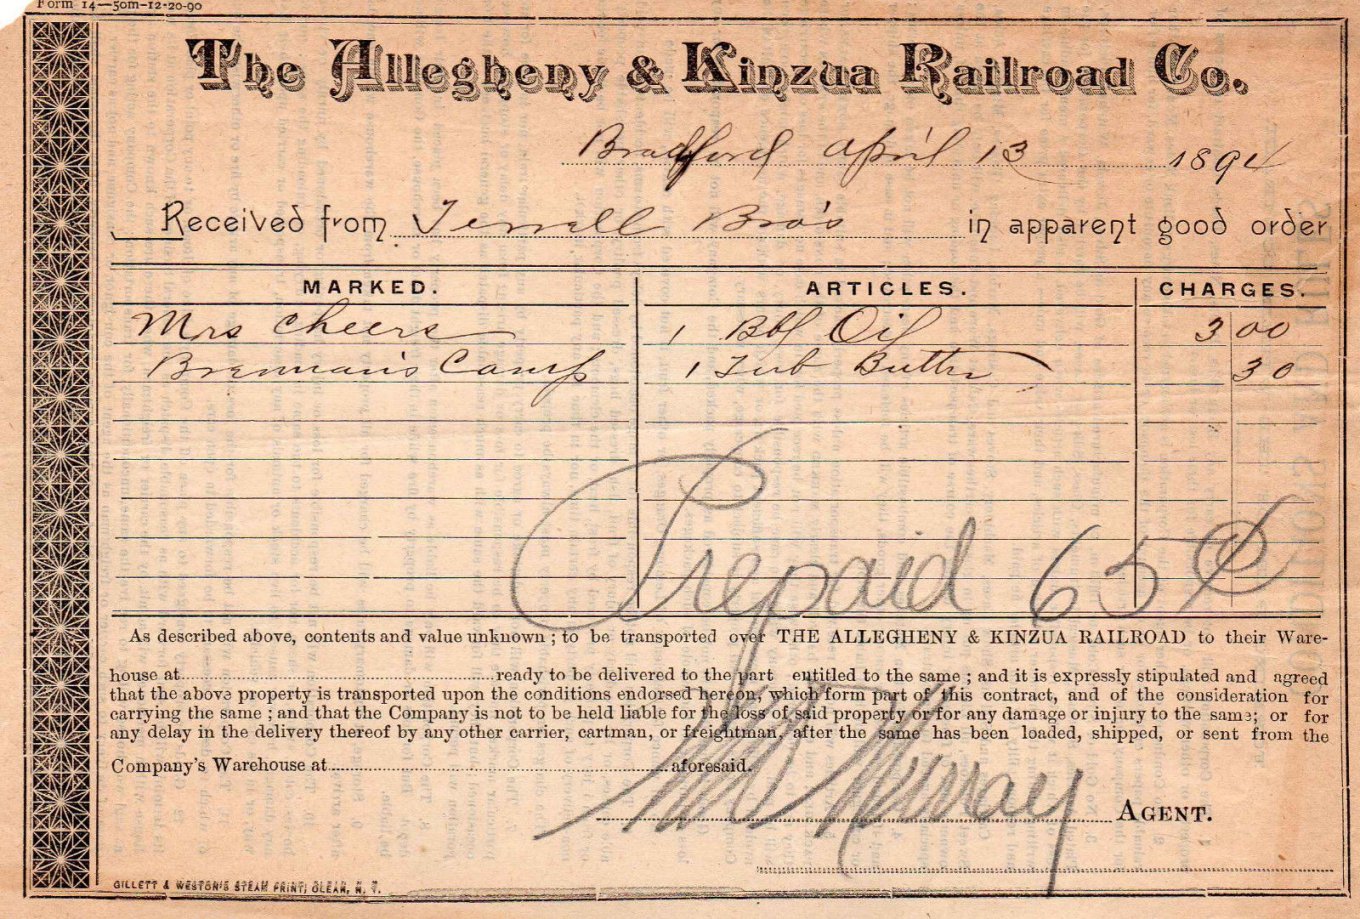 Form 14—50m-12-20-90
The Allegheny & Kinzua Railroad Co.
Bradford April 13 1891
Received from Terrell Bro's in apparent good order
MARKED. ARTICLES. CHARGES.
Mrs Cheers 1 Bbl Oil 3 00
Brennan's Camp 1 Tub Butter 30
Prepaid 65¢
As described above, contents and value unknown; to be transported over THE ALLEGHENY & KINZUA RAILROAD to their Ware-
house at ready to be delivered to the part entitled to the same; and it is expressly stipulated and agreed
that the above property is transported upon the conditions endorsed hereon, which form part of this contract, and of the consideration for
carrying the same; and that the Company is not to be held liable for the loss of said property or for any damage or injury to the same; or for
any delay in the delivery thereof by any other carrier, cartman, or freightman, after the same has been loaded, shipped, or sent from the
Company's Warehouse at aforesaid.
Murray AGENT.
GILLETT & WESTON'S STEAM PRINT, OLEAN, N. Y.